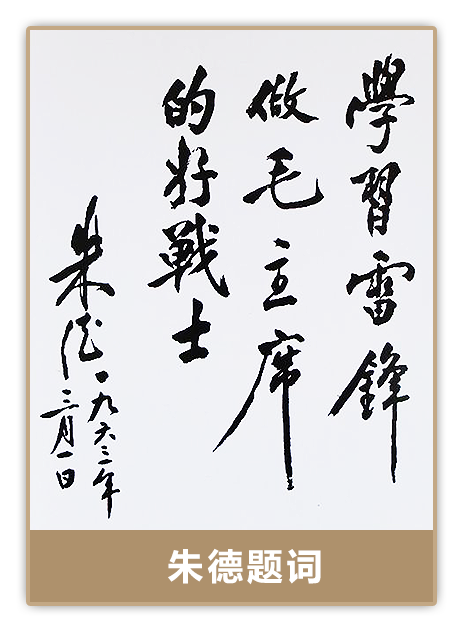 學習雷鋒
做毛主席
的好戰士
朱德
一九六三年
三月一日
朱德题词